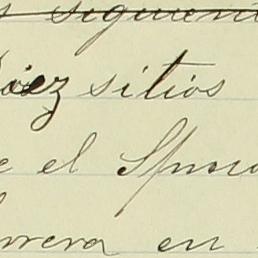 siguient
Diez sitios
e el Spmo
rrera en